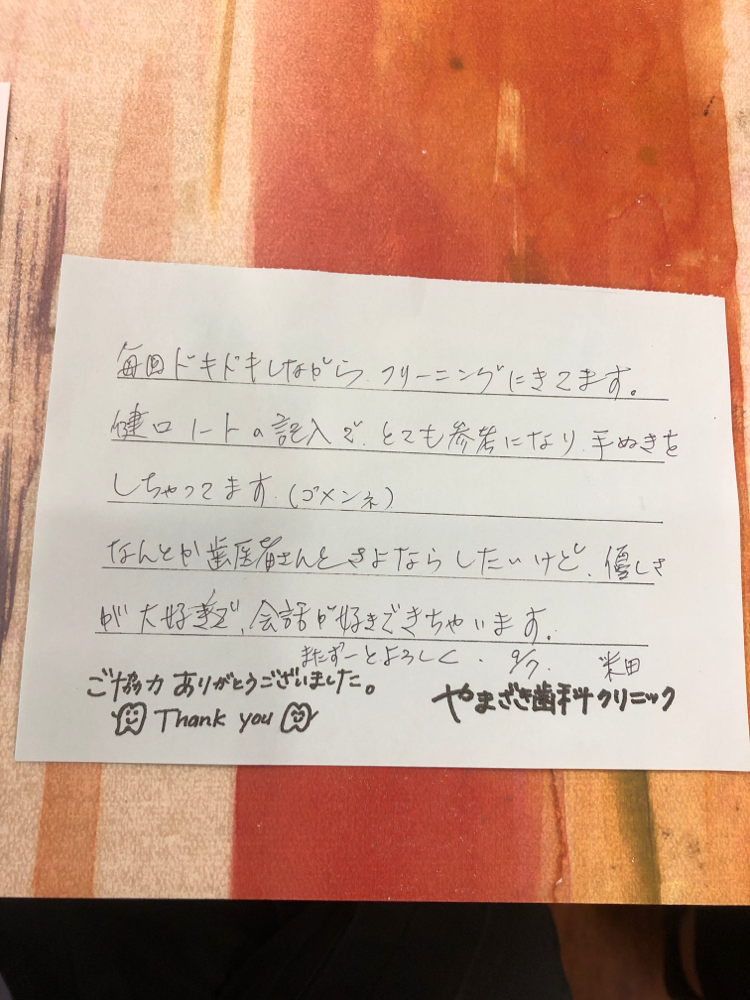 毎回ドキドキしながら、クリーニングにきてます。
健口ノートの記入で、とても参考になり、手ぬきを
しちゃってます。(ゴメンネ)
なんとか歯医者さんとさよならしたいけど、優しさ
が大好きで、会話が好きできちゃいます。
またずーとよろしく、9/7、米田
ご協力ありがとうございました。
Thank you
やまざき歯科クリニック